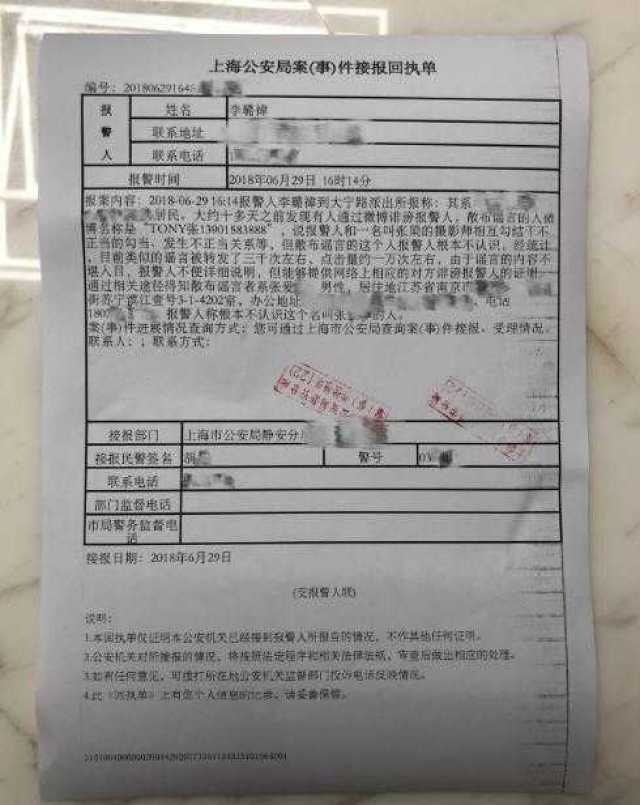 上海公安局案(事)件接报回执单
编号: 201806291645
报警人
姓名
李曦禕
联系地址
联系电话
报警时间
2018年06月29日 16时14分
报案内容: 2018-06-29 16:14报警人李曦禕到大宁路派出所报称: 其系
居民, 大约十多天之前发现有人通过微博诽谤报警人, 散布谣言的人微
博名称是“TONY张13901583888”, 说报警人和一名叫张梁的摄影师相互勾结干不
正当的勾当、发生不正当关系等, 但散布谣言的这个人报警人根本不认识, 经统计
, 目前类似的谣言被转发了三千次左右, 点击量约一万次左右, 由于谣言的内容不
堪入目, 报警人不便详细说明, 但能够提供网络上相应的对方诽谤报警人的证明,
通过相关途径得知散布谣言者系张爱 男性, 居住地江苏省南京
街苏宁滨江壹号3-1-4202室, 办公地址 , 电话
180 . 报警人称根本不认识这个名叫张 的人。
案(事)件进展情况查询方式: 您可通过上海市公安局查询案(事)件接报、受理情况。
联系人: ; 联系方式:
接报部门
上海市公安局静安分
接报民警签名
胡
警号
联系电话
部门监督电话
市局警务监督电话
接报日期: 2018年6月29日
(交报警人联)
说明:
1.本回执单仅证明本公安机关已经接到报警人所报告的情况, 不作其他任何证明。
2.公安机关对所接报的情况, 将按照法定程序和相关法律法规, 审查后做出相应的处理。
3.如有任何意见, 可拨打所在地公安机关监督部门投诉电话反映情况。
4.此《回执单》上有您个人信息的记录, 请妥善保管。